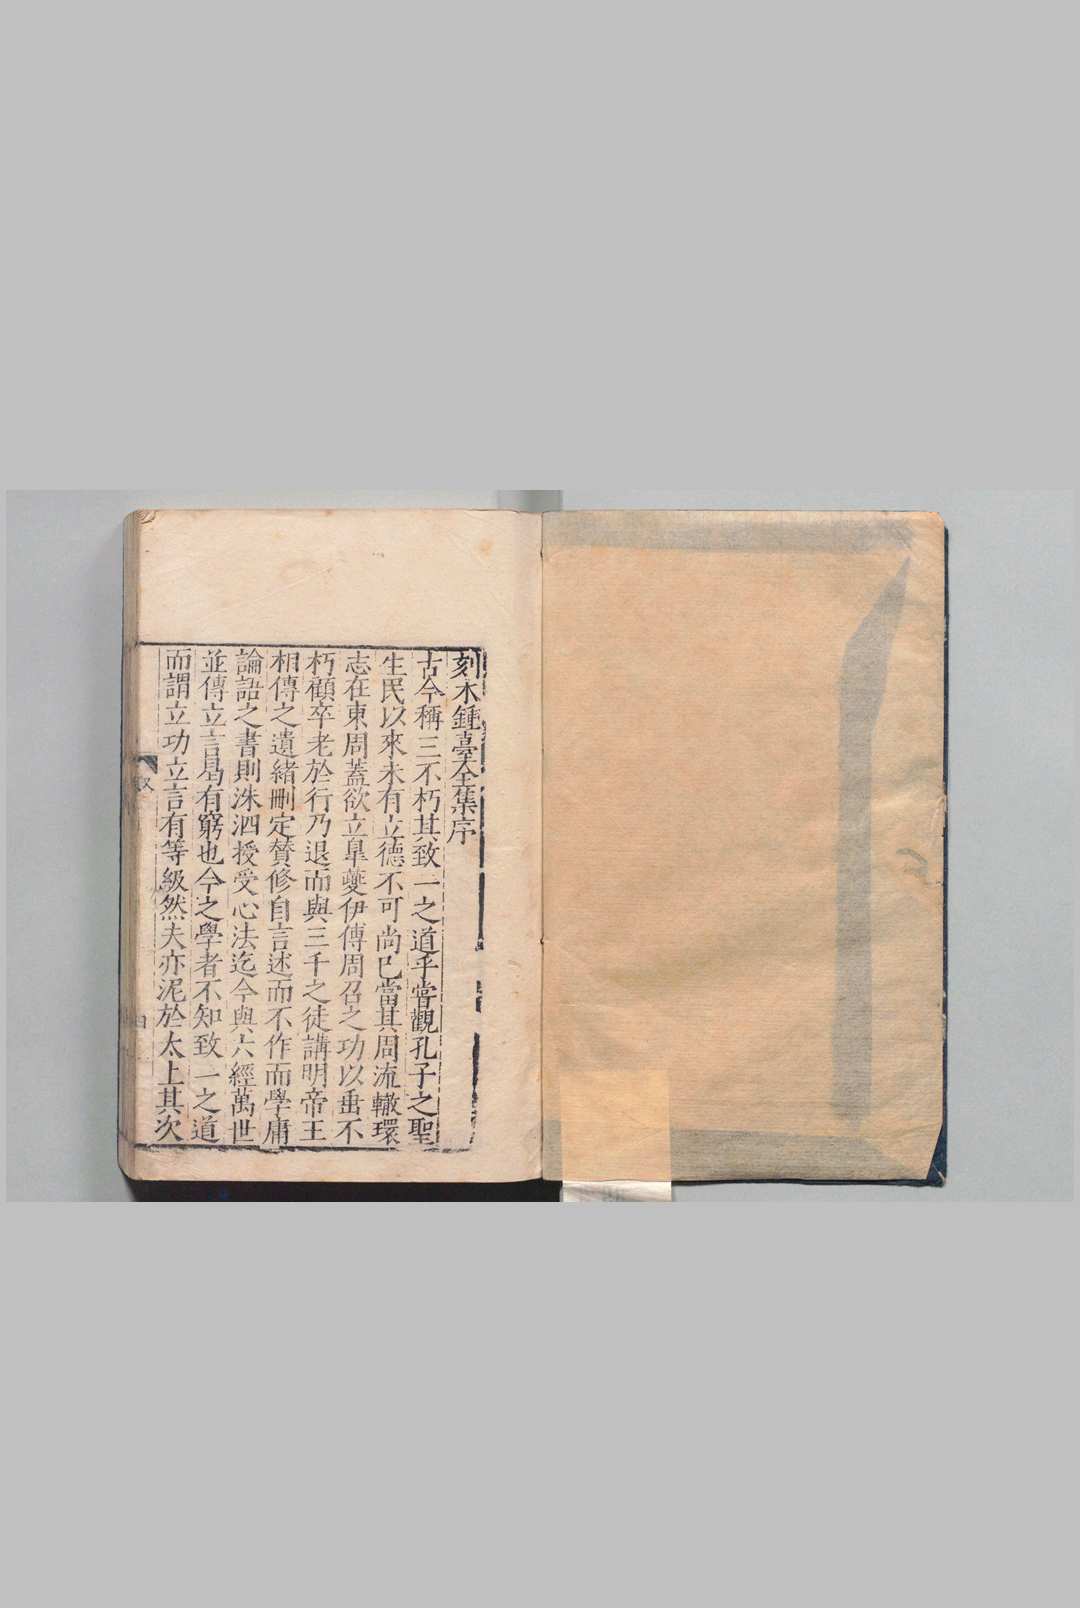 刻木鍾臺全集序
古今稱三不朽其致一之道乎嘗觀孔子之聖
生民以來未有立德不可尚已當其周流轍環
志在東周蓋欲立臯夔伊傅周召之功以垂不
朽顧卒老於行乃退而與三千之徒講明帝王
相傳之遺緒刪定贊修自言述而不作而學庸
論語之書則洙泗授受心法迄今與六經萬世
並傳立言曷有窮也今之學者不知致一之道
而謂立功立言有等級然夫亦泥於太上其次